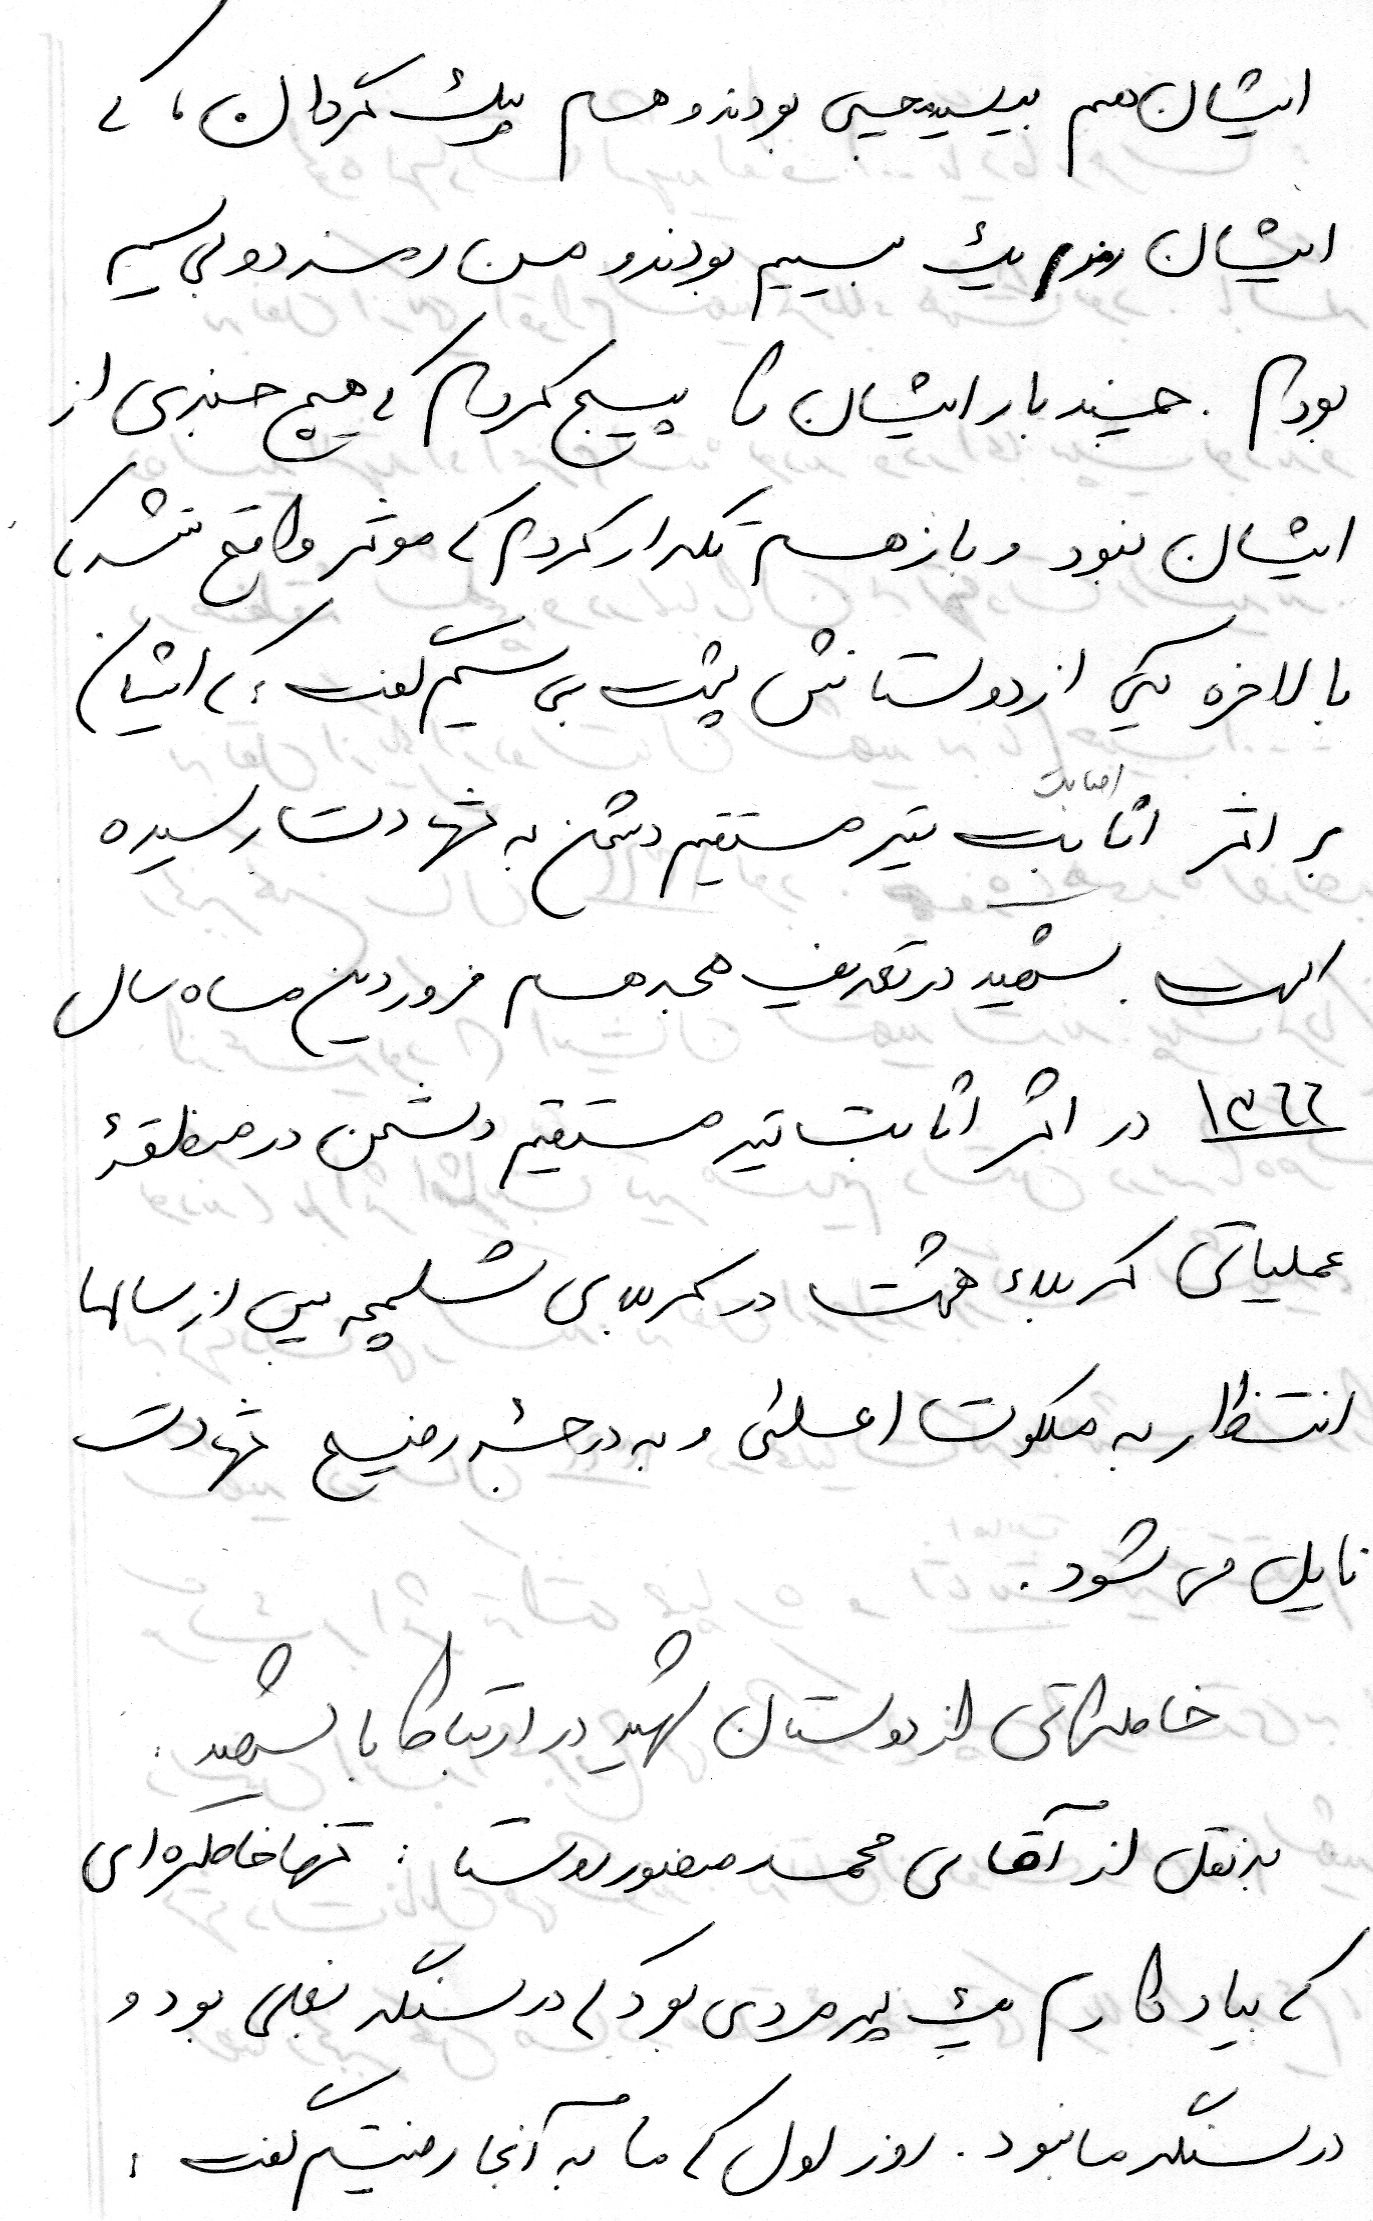 ایشان هم بیسیمچی بودند و هم پیک گردان، که
ایشان رمز یک بیسیم بودند و من رمز دو بی سیم
بودم. چند بار ایشان را پیج کردم که هیچ خبری از
ایشان نبود و باز هم تکرار کردم که موثر واقع نشد که
بالاخره یکی از دوستانش پشت بی سیم گفت که ایشان
اصابت
بر اثر اثابت تیر مستقیم دشمن به شهادت رسیده
است. شهید در تعریف هجدهم فروردین ماه سال
۱۳۶۶ در اثر اثابت تیر مستقیم دشمن در منطقهٔ
عملیاتی کربلاء هشت در کربلای شلمچه پس از سالها
انتظار به ملکوت اعلی و به درجه رفیع شهادت
نایل می شود.
خاطراتی از دوستان شهید در ارتباط با شهید:
به نقل از آقای محمد منصور روستا: تنها خاطره ای
که بیاد دارم یک پیرمردی بود که در سنگر بغلی بود و
در سنگر ما نبود. روز اول که ما به آنجا رفتیم گفت: